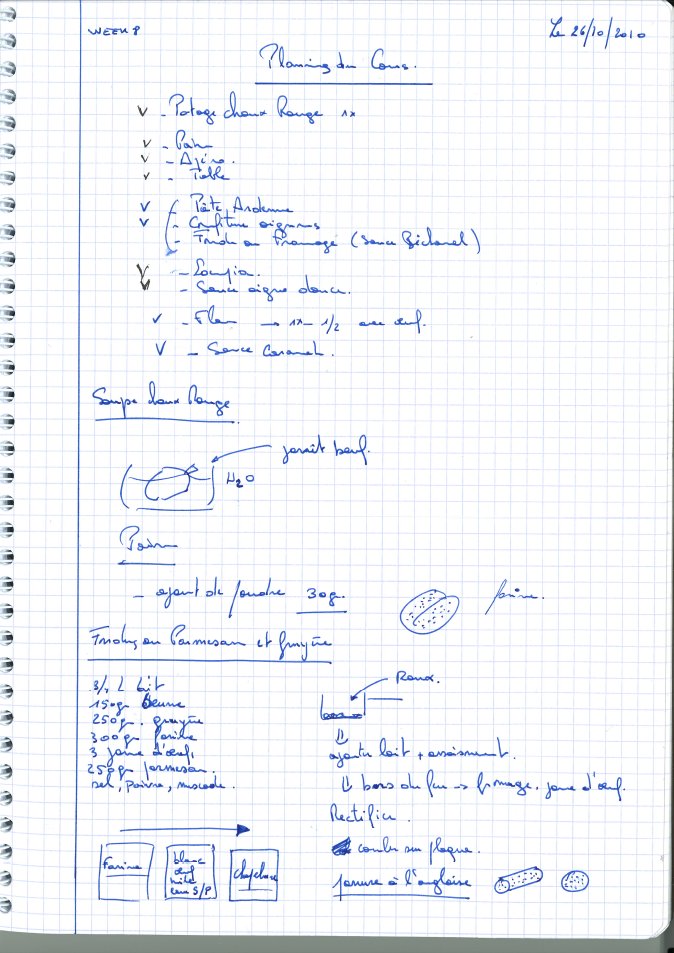 WEEK 8
Le 26/10/2010
Planning du Cours.
V - Potage choux Rouge 1x
V - Pain
V - Apéro.
V - Table
V - Pâté Ardenne
V - Confiture oignons
- Fondu au Fromage (Sauce Béchamel)
V - Loempia.
V - Sauce aigre douce.
V - Flan → 1x - 1/2 avec œuf.
V - Sauce Caramel.
Soupe choux Rouge
jarrêt bœuf.
H2O
Pain
- ajout de poudre 30gr.
farine.
Fondu au Parmesan et gruyère
3/4 L lait
150gr Beurre
250gr. gruyère
300gr farine
3 jaune d'œuf,
250gr parmesan.
sel, poivre, muscade.
Roux.
ajouter lait + assaisonnement.
hors du feu → fromage, jaune d'œuf.
Rectifier.
couler sur plaque.
panure à l'anglaise
farine
blanc
œuf
huile
eau S/P
chapelure